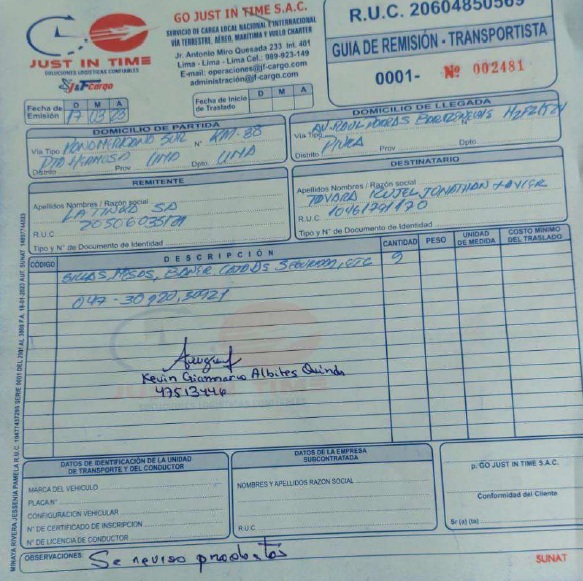 JUST IN TIME
SOLUCIONES LOGISTICAS CONFIABLES
J&F Cargo
GO JUST IN TIME S.A.C.
SERVICIO DE CARGA LOCAL NACIONAL E INTERNACIONAL
VÍA TERRESTRE, AÉREO, MARÍTIMA Y VUELO CHARTER
Jr. Antonio Miro Quesada 233 Int. 401
Lima - Lima - Lima Cel.: 989-923-149
E-mail: operaciones@jf-cargo.com
administración@jf-cargo.com
R.U.C. 20604850569
GUIA DE REMISIÓN - TRANSPORTISTA
0001- Nº 002481
Fecha de Emisión D M A
17 03 23
Fecha de Inicio de Traslado D M A
DOMICILIO DE PARTIDA
Vía Tipo PANAMERICANA SUR N° KM-38
PTA HERMOSA LIMA LIMA
Distrito Prov Dpto.
DOMICILIO DE LLEGADA
Vía Tipo
Distrito PIURA Prov Dpto
REMITENTE
Apellidos Nombres / Razón social
LATINGA SA
R.U.C
Tipo y N° de Documento de Identidad
DESTINATARIO
Apellidos Nombres / Razón social
JONATHAN
R.U.C. 10461791170
Tipo y N° de Documento de Identidad
CÓDIGO DESCRIPCIÓN CANTIDAD PESO UNIDAD DE MEDIDA COSTO MÍNIMO DEL TRASLADO
SILLAS, MESAS, ETC 9
047-30920,30921
Kevin Gianmarco Albites Quinde
47513446
DATOS DE IDENTIFICACIÓN DE LA UNIDAD DE TRANSPORTE Y DEL CONDUCTOR
MARCA DEL VEHICULO
PLACA N°
CONFIGURACION VEHICULAR
N° DE CERTIFICADO DE INSCRIPCION
N° DE LICENCIA DE CONDUCTOR
DATOS DE LA EMPRESA SUBCONTRATADA
NOMBRES Y APELLIDOS RAZON SOCIAL
R.U.C
p. GO JUST IN TIME S.A.C.
Conformidad del Cliente
Sr (a) (ta)
OBSERVACIONES Se reviso productos
SUNAT